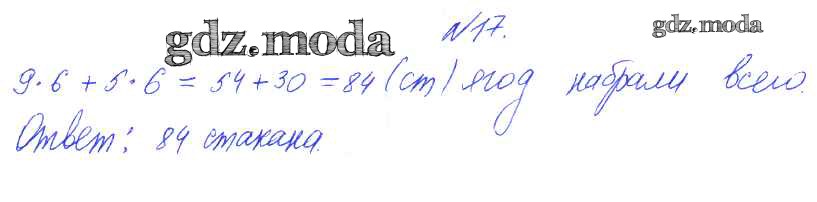 gdz.moda №17. gdz.moda
9·6 + 5·6 = 54 + 30 = 84 (ст) ягод набрали всего.
Ответ: 84 стакана.